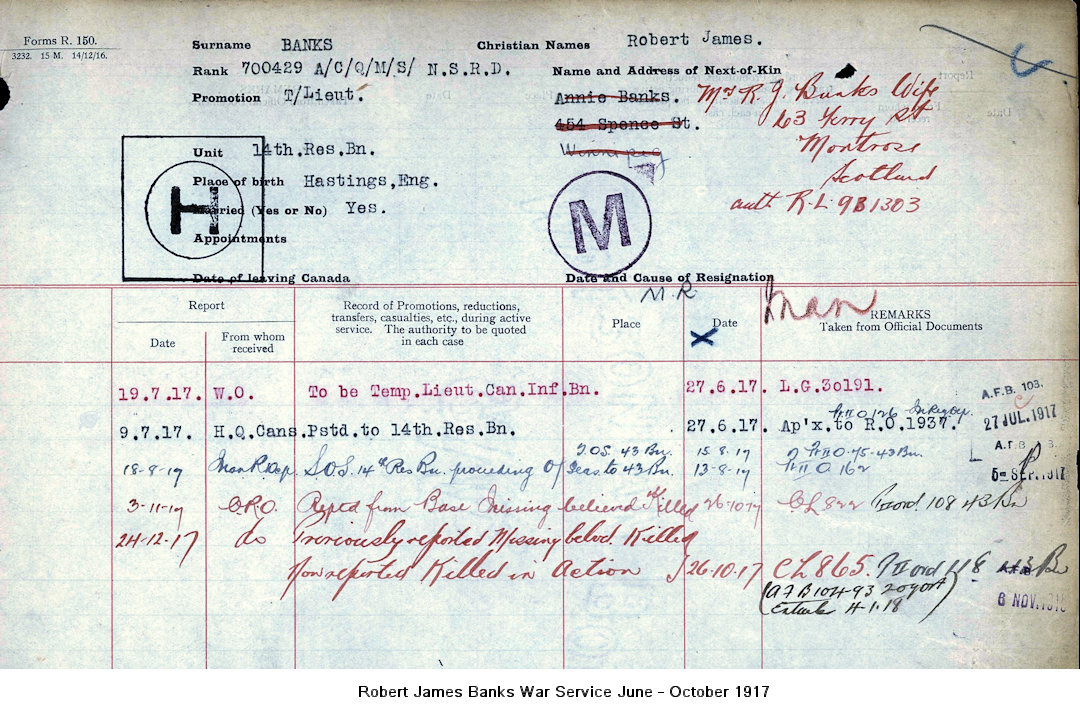 Forms R. 150.
3232. 15 M. 14/12/16.
Surname BANKS
Christian Names Robert James.
Rank 700429 A/C/Q/M/S/ N.S.R.D.
Name and Address of Next-of-Kin
Promotion T/Lieut.
Annie Banks. Mrs R. J. Banks Wife
454 Spence St. 63 Ferry St
Winnipeg Montrose
Scotland
auth R.L. 9B1303
Unit 14th.Res.Bn.
Place of birth Hastings,Eng.
Married (Yes or No) Yes.
H
M
Appointments
Date of leaving Canada
Date and Cause of Resignation
M.R
Man
Report
Date
From whom received
Record of Promotions, reductions,
transfers, casualties, etc., during active
service. The authority to be quoted
in each case
Place
X Date
REMARKS
Taken from Official Documents
19.7.17. W.O. To be Temp.Lieut.Can.Inf.Bn. 27.6.17. L.G.30191.
A.F.B. 103.
27 JUL.1917
9.7.17. H.Q.Cans. Pstd.to 14th.Res.Bn. 27.6.17. Ap'x.to R.O.1937.
T.O.S. 43 Bn. 15-8-17
18-8-17 S.O.S. 14th Res Bn. proceeding O/Seas to 43 Bn. 13-8-17 162
5 SEP.1917
3-11-17 C.R.O. Reptd from Base Missing believed Killed 26-10-17 CL 822 108 43 Bn
24-12-17 do Previously reported Missing belvd. Killed
Now reported Killed in Action 26-10-17 CL 865. 43 Bn
(A F B 104-93
4-1-18)
6 NOV.1918
Robert James Banks War Service June - October 1917